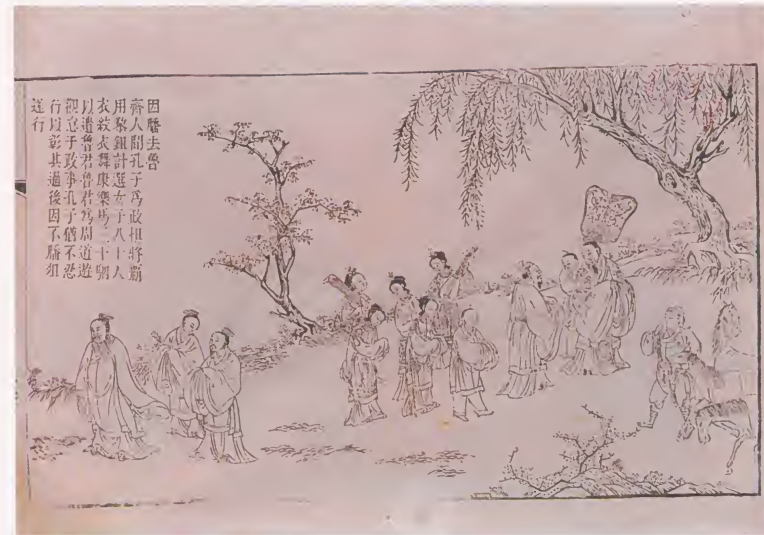 因膰去魯
齊人聞孔子爲政相將霸
用黎鉏計選女子八十人
衣紋衣舞康樂馬三十駟
以遺魯君魯君爲周道遊
觀怠于政事孔子猶不忍
行以彰其過後因不膰俎
遂行